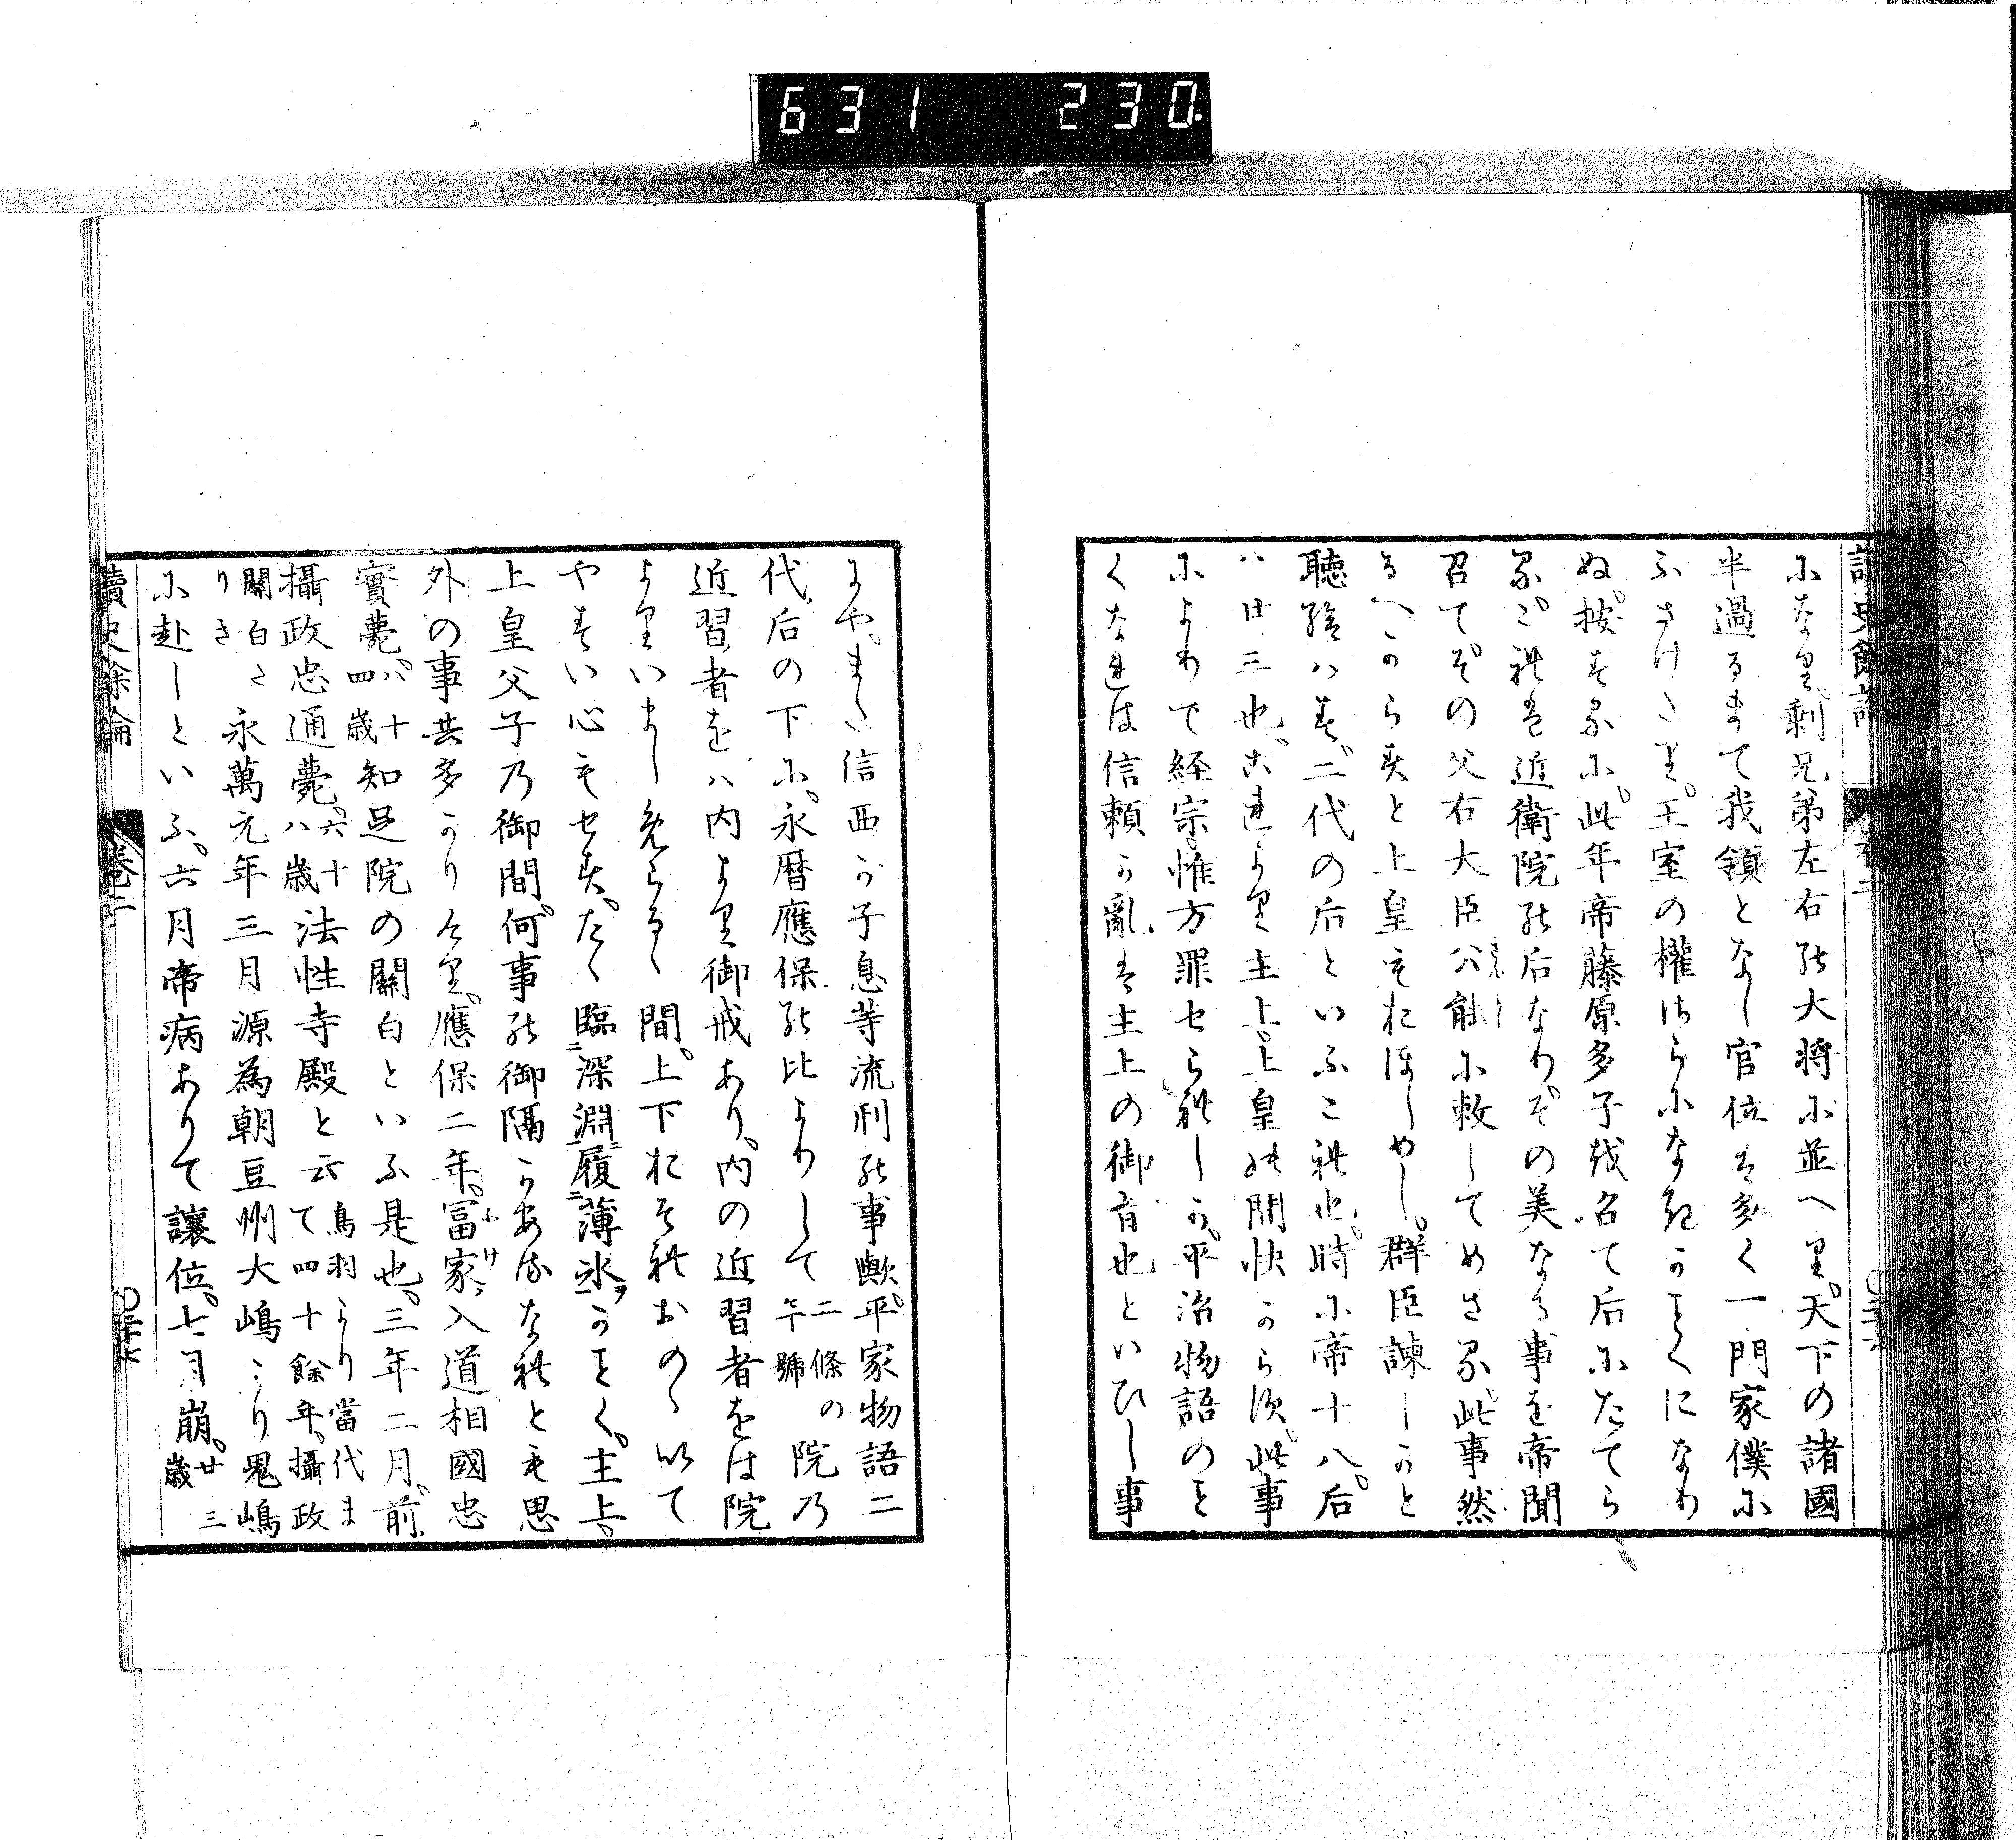 631 230
になり剰兄弟左右の大将に並へり。天下の諸國
半過るまて我領となし官位も多く一門家僕に
ふさけたり。王室の權はらになきかことくになり
ぬ。按するに。此年帝藤原多子を召て后にたてら
る。これは近衛院の后なり。その美なる事を帝聞
召て。その父右大臣公能に敕してめさる。此事然
るへからすと上皇もおほしめし。群臣諫しかと
聴給はす。二代の后といふこれ也。時に帝十八。后
ハ廿三也。これより主上。上皇の間快からす。此事
によりて経宗。惟方罪せられしか。平治物語のこと
くなれは信頼か亂も主上の御旨也といひし事
にや。また信西か子息等流刑の事歟。平家物語二
代后の下に。永暦應保の比よりして二條の院乃年號
近習者をハ内より御戒あり。内の近習者をは院
よりいましめらるゝ間。上下おそれおのゝいて
やすい心もせす。たゝ臨深淵履薄氷かことく。主上。
上皇父子乃御間。何事の御隔かあるなれとも思
外の事共多かりけり。應保二年。冨家入道相國忠
實薨。八十四歳知足院の關白といふ是也。三年二月。前
攝政忠通薨。六十八歳法性寺殿と云鳥羽より當代まて四十餘年。攝政
關白たりき永萬元年三月源為朝豆州大嶋より鬼嶋
に赴しといふ。六月帝病ありて讓位。七月崩。廿三歳
讀史餘論
巻二